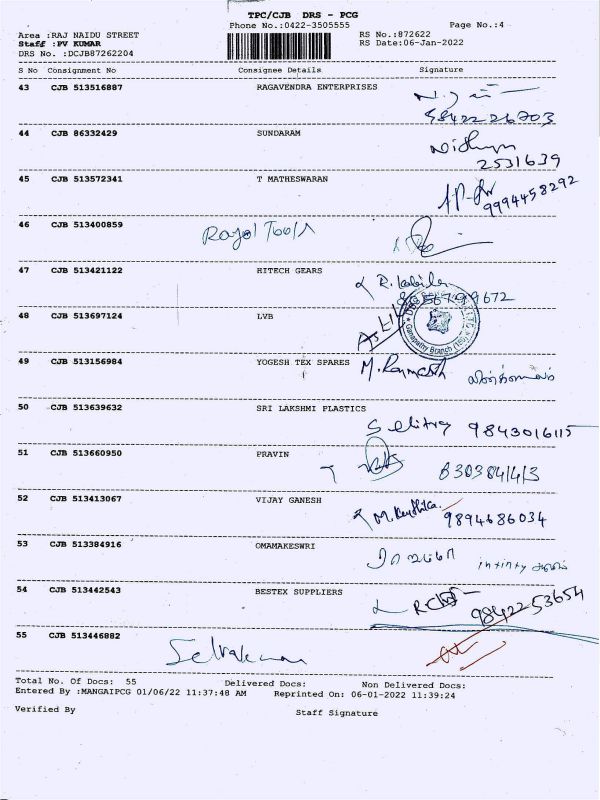 TPC/CJB DRS - PCG
Phone No.:0422-3505555 Page No.:4
Area :RAJ NAIDU STREET RS No.:872622
Staff :PV KUMAR RS Date:06-Jan-2022
DRS No. :DCJB87262204
S No Consignment No Consignee Details Signature
43 CJB 513516887 RAGAVENDRA ENTERPRISES
9842226703
44 CJB 86332429 SUNDARAM
2531639
45 CJB 513572341 T MATHESWARAN
9994458292
46 CJB 513400859 Rajal Tools
47 CJB 513421122 HITECH GEARS
48 CJB 513697124 LVB
Ganapathy Branch
49 CJB 513156984 YOGESH TEX SPARES M. Ramesh
50 CJB 513639632 SRI LAKSHMI PLASTICS
9843016115
51 CJB 513660950 PRAVIN
52 CJB 513413067 VIJAY GANESH
9894686034
53 CJB 513384916 OMAMAKESWRI
54 CJB 513442543 BESTEX SUPPLIERS
9842253654
55 CJB 513446882 Selvakumar
Total No. Of Docs: 55 Delivered Docs: Non Delivered Docs:
Entered By :MANGAIPCG 01/06/22 11:37:48 AM Reprinted On: 06-01-2022 11:39:24
Verified By Staff Signature